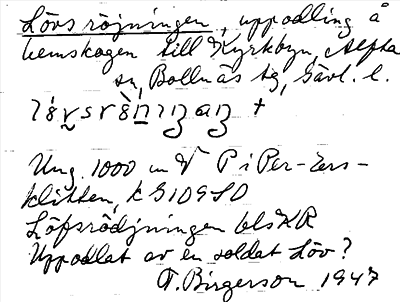 Lövsröjningen, uppodling å
hemskogen till Kyrkbyn, Alfta
sn, Bollnäs tg, Gävl. l.
Ung. 1000 m V P i Per-Ers-
klitten, k G109 SO
Löfsrödjningen bls KR
Uppodlat av en soldat Löv?
T. Birgerson 1947